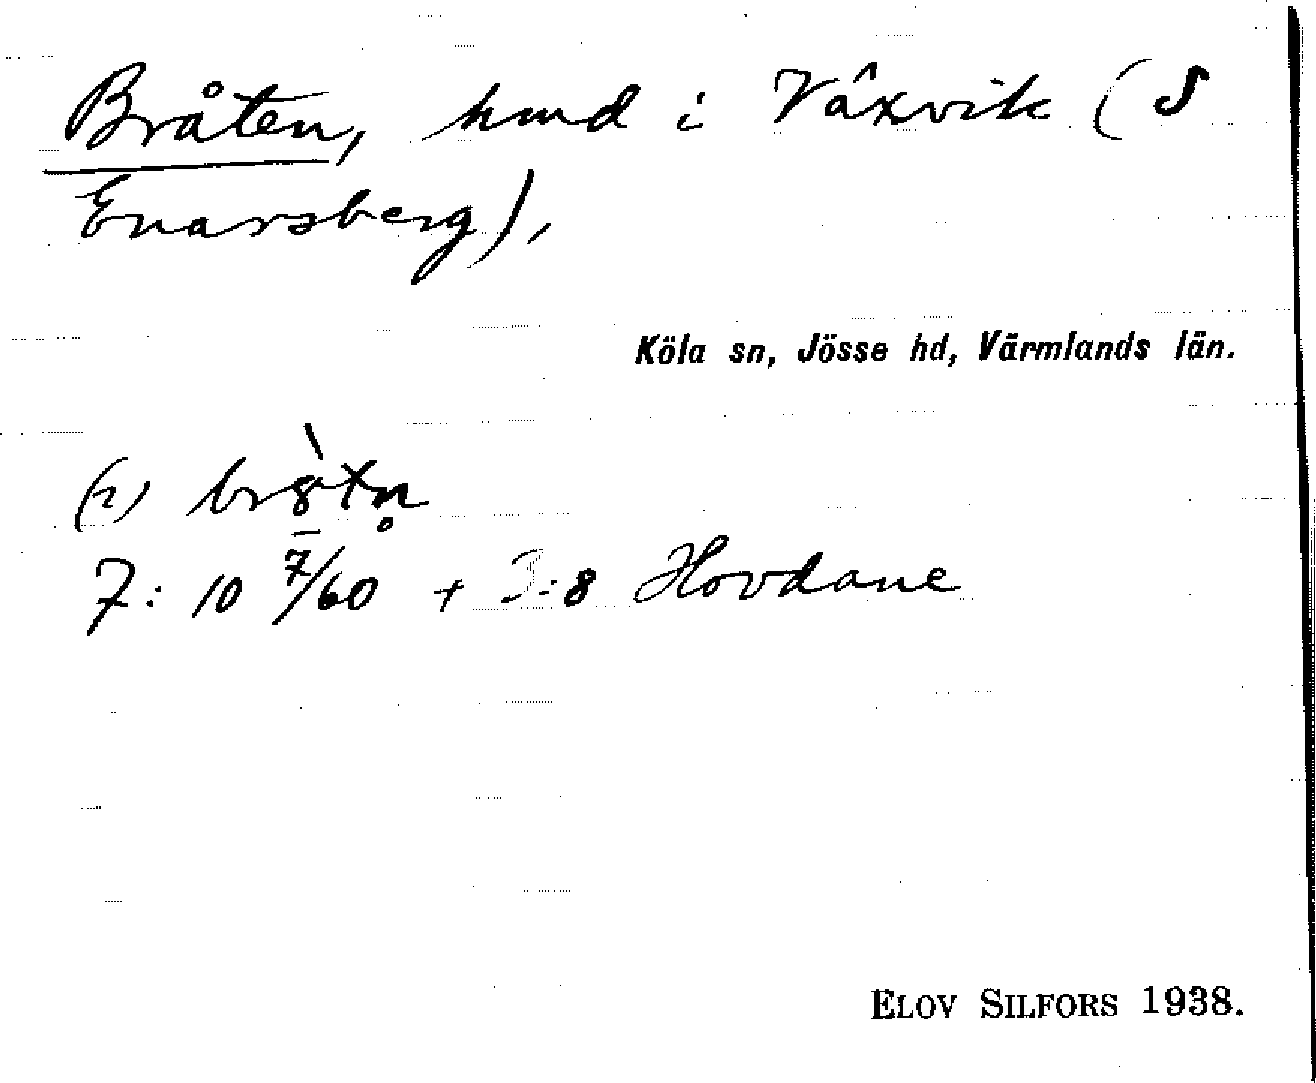 Bråten, hmd i Växvik (S
Enarsberg),
Köla sn, Jösse hd, Värmlands län.
(2) br8̀tn̥
7: 10 7/60 + 3:8 Hovdane
ELOV SILFORS 1938.